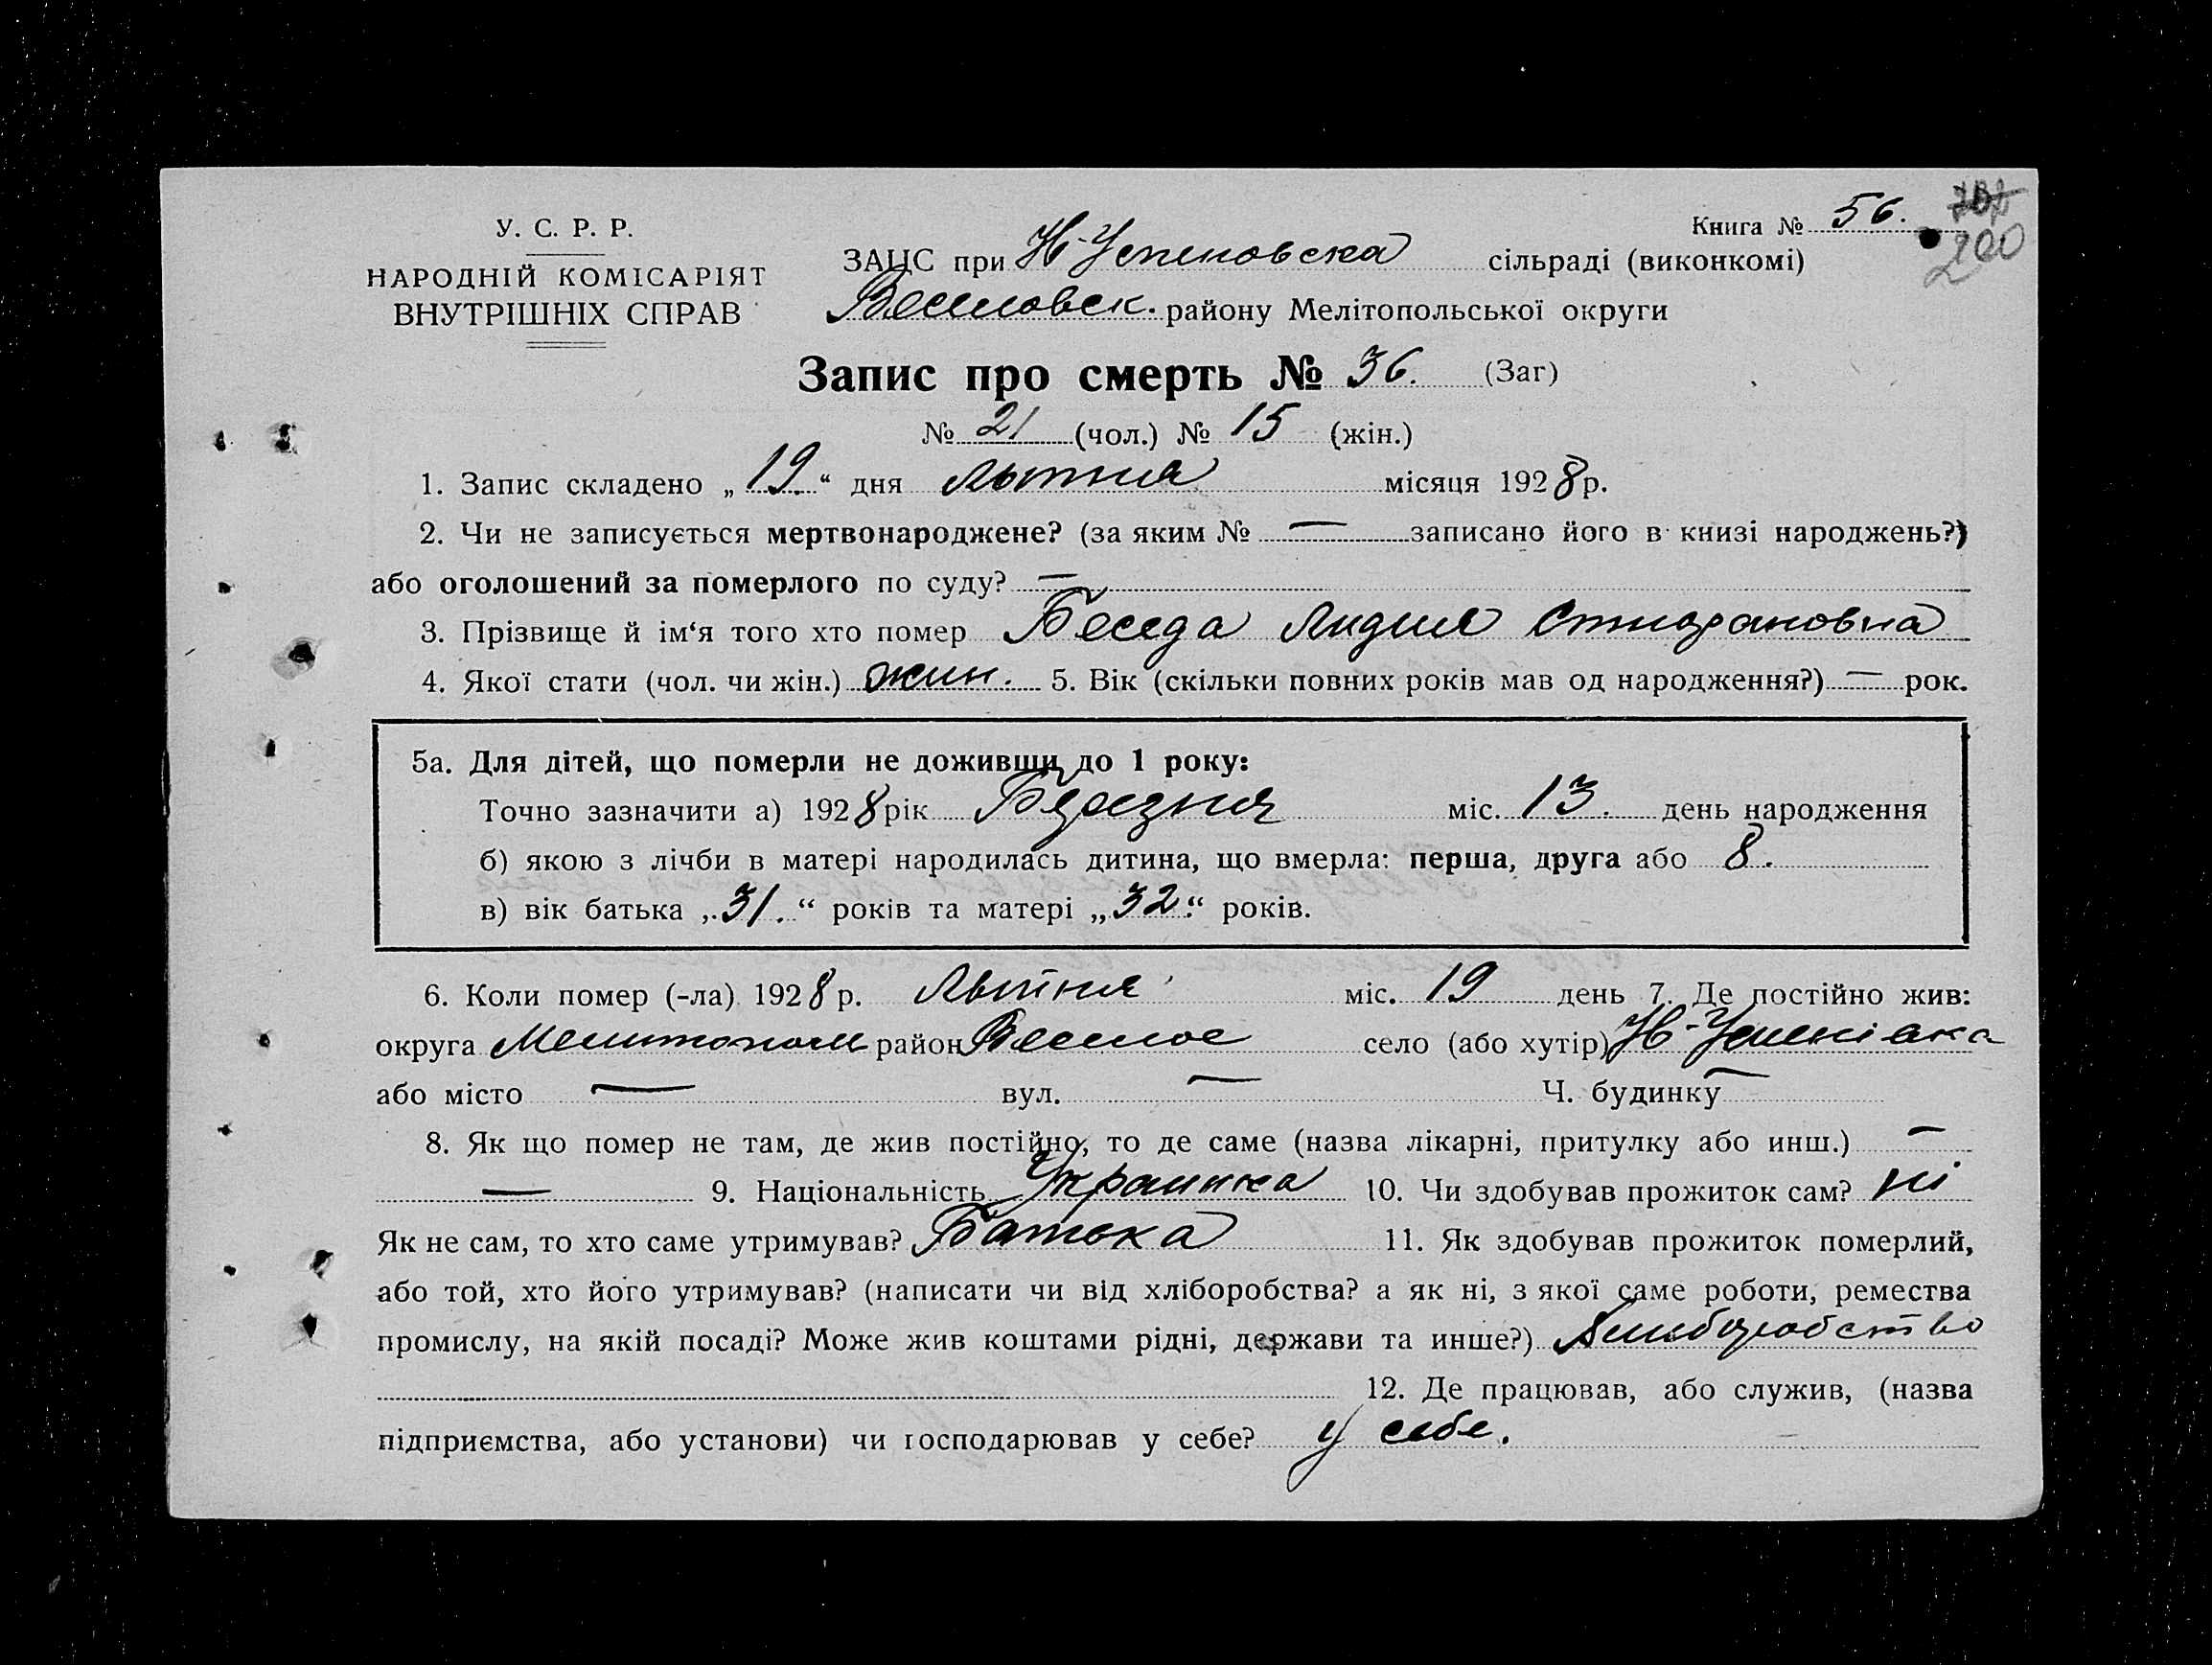 Книга № 56. 200
У. С. Р. Р.
НАРОДНІЙ КОМІСАРІЯТ
ВНУТРІШНІХ СПРАВ
ЗАЦС при Н-Успеновска сільраді (виконкомі)
Веселовск. району Мелітопольської округи
Запис про смерть № 36. (Заг)
№ 21 (чол.) № 15 (жін.)
1. Запис складено „19.“ дня Лютня місяця 1928 р.
2. Чи не записується мертвонароджене? (за яким № — записано його в книзі народжень?)
або оголошений за померлого по суду? —
3. Прізвище й ім‘я того хто помер Беседа Лидия
4. Якої стати (чол. чи жін.) жин. 5. Вік (скільки повних років мав од народження?) — рок.
5а. Для дітей, що померли не доживши до 1 року:
Точно зазначити а) 1928 рік Березня міс. 13. день народження
б) якою з лічби в матері народилась дитина, що вмерла: перша, друга або 8.
в) вік батька „31.“ років та матері „32.“ років.
6. Коли помер (-ла) 1928 р. Лютня міс. 19 день 7. Де постійно жив:
округа Мелитополь район Веселое село (або хутір) Н-Успенівка
або місто — вул. — Ч. будинку —
8. Як що помер не там, де жив постійно, то де саме (назва лікарні, притулку або инш.) —
— 9. Національність Украинка 10. Чи здобував прожиток сам? ні
Як не сам, то хто саме утримував? Батька 11. Як здобував прожиток померлий,
або той, хто його утримував? (написати чи від хліборобства? а як ні, з якої саме роботи, ремества
промислу, на якій посаді? Може жив коштами рідні, держави та инше?) Хлиборобство
12. Де працював, або служив, (назва
підприємства, або установи) чи господарював у себе? у себе.